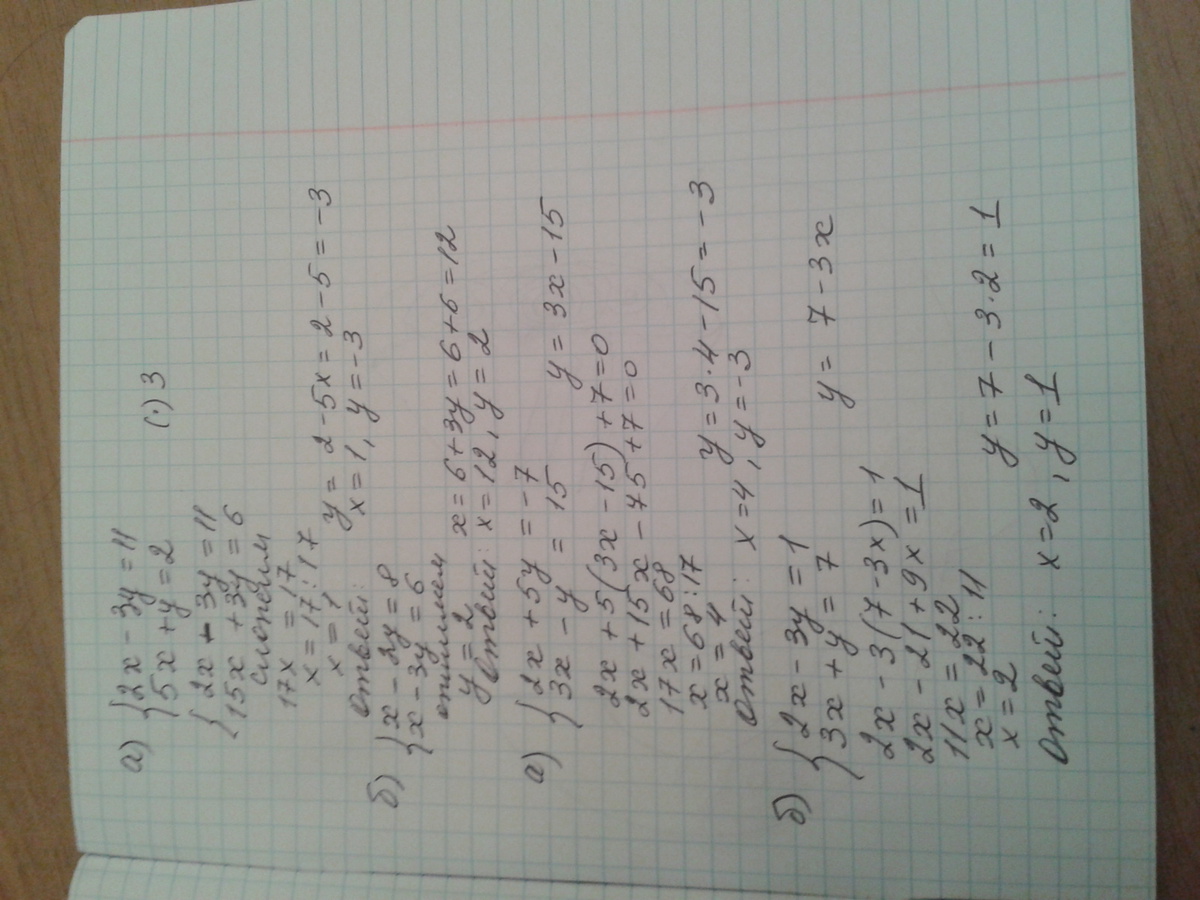 а) {2x - 3y = 11
5x + y = 2 (·) 3
{2x - 3y = 11
15x + 3y = 6
сложим
17x = 17
x = 17 : 17
x = 1
y = 2 - 5x = 2 - 5 = -3
Ответ: x = 1, y = -3
б) {x - 2y = 8
x - 3y = 6
отнимем x = 6 + 3y = 6 + 6 = 12
y = 2
Ответ: x = 12, y = 2
а) {2x + 5y = -7
3x - y = 15 y = 3x - 15
2x + 5(3x - 15) + 7 = 0
2x + 15x - 75 + 7 = 0
17x = 68
x = 68 : 17
x = 4 y = 3·4 - 15 = -3
Ответ: x = 4, y = -3
б) {2x - 3y = 1
3x + y = 7 y = 7 - 3x
2x - 3(7 - 3x) = 1
2x - 21 + 9x = 1
11x = 22
x = 22 : 11
x = 2 y = 7 - 3·2 = 1
Ответ: x = 2, y = 1